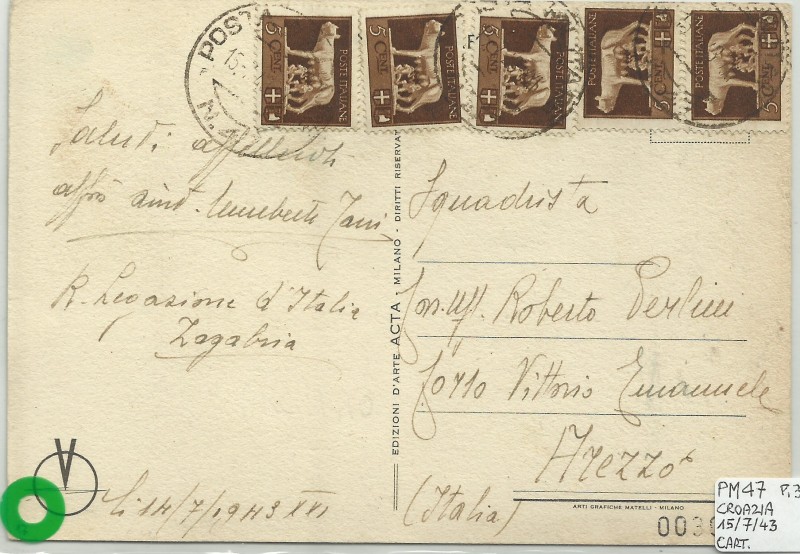 POSTA
15
N.
5 CENT.
POSTE ITALIANE
5 CENT.
POSTE ITALIANE
5 CENT.
POSTE ITALIANE
5 CENT.
POSTE ITALIANE
5 CENT.
POSTE ITALIANE
Saluti affettuosi
Umberto
R. Legazione d'Italia
Zagabria
li 14/7/1943 XXI
EDIZIONI D'ARTE ACTA - MILANO - DIRITTI RISERVAT
Squadrista
Roberto
Corso Vittorio Emanuele
Arezzo
(Italia)
ARTI GRAFICHE MATELLI - MILANO
003
PM47 P.3
CROAZIA
15/7/43
CART.